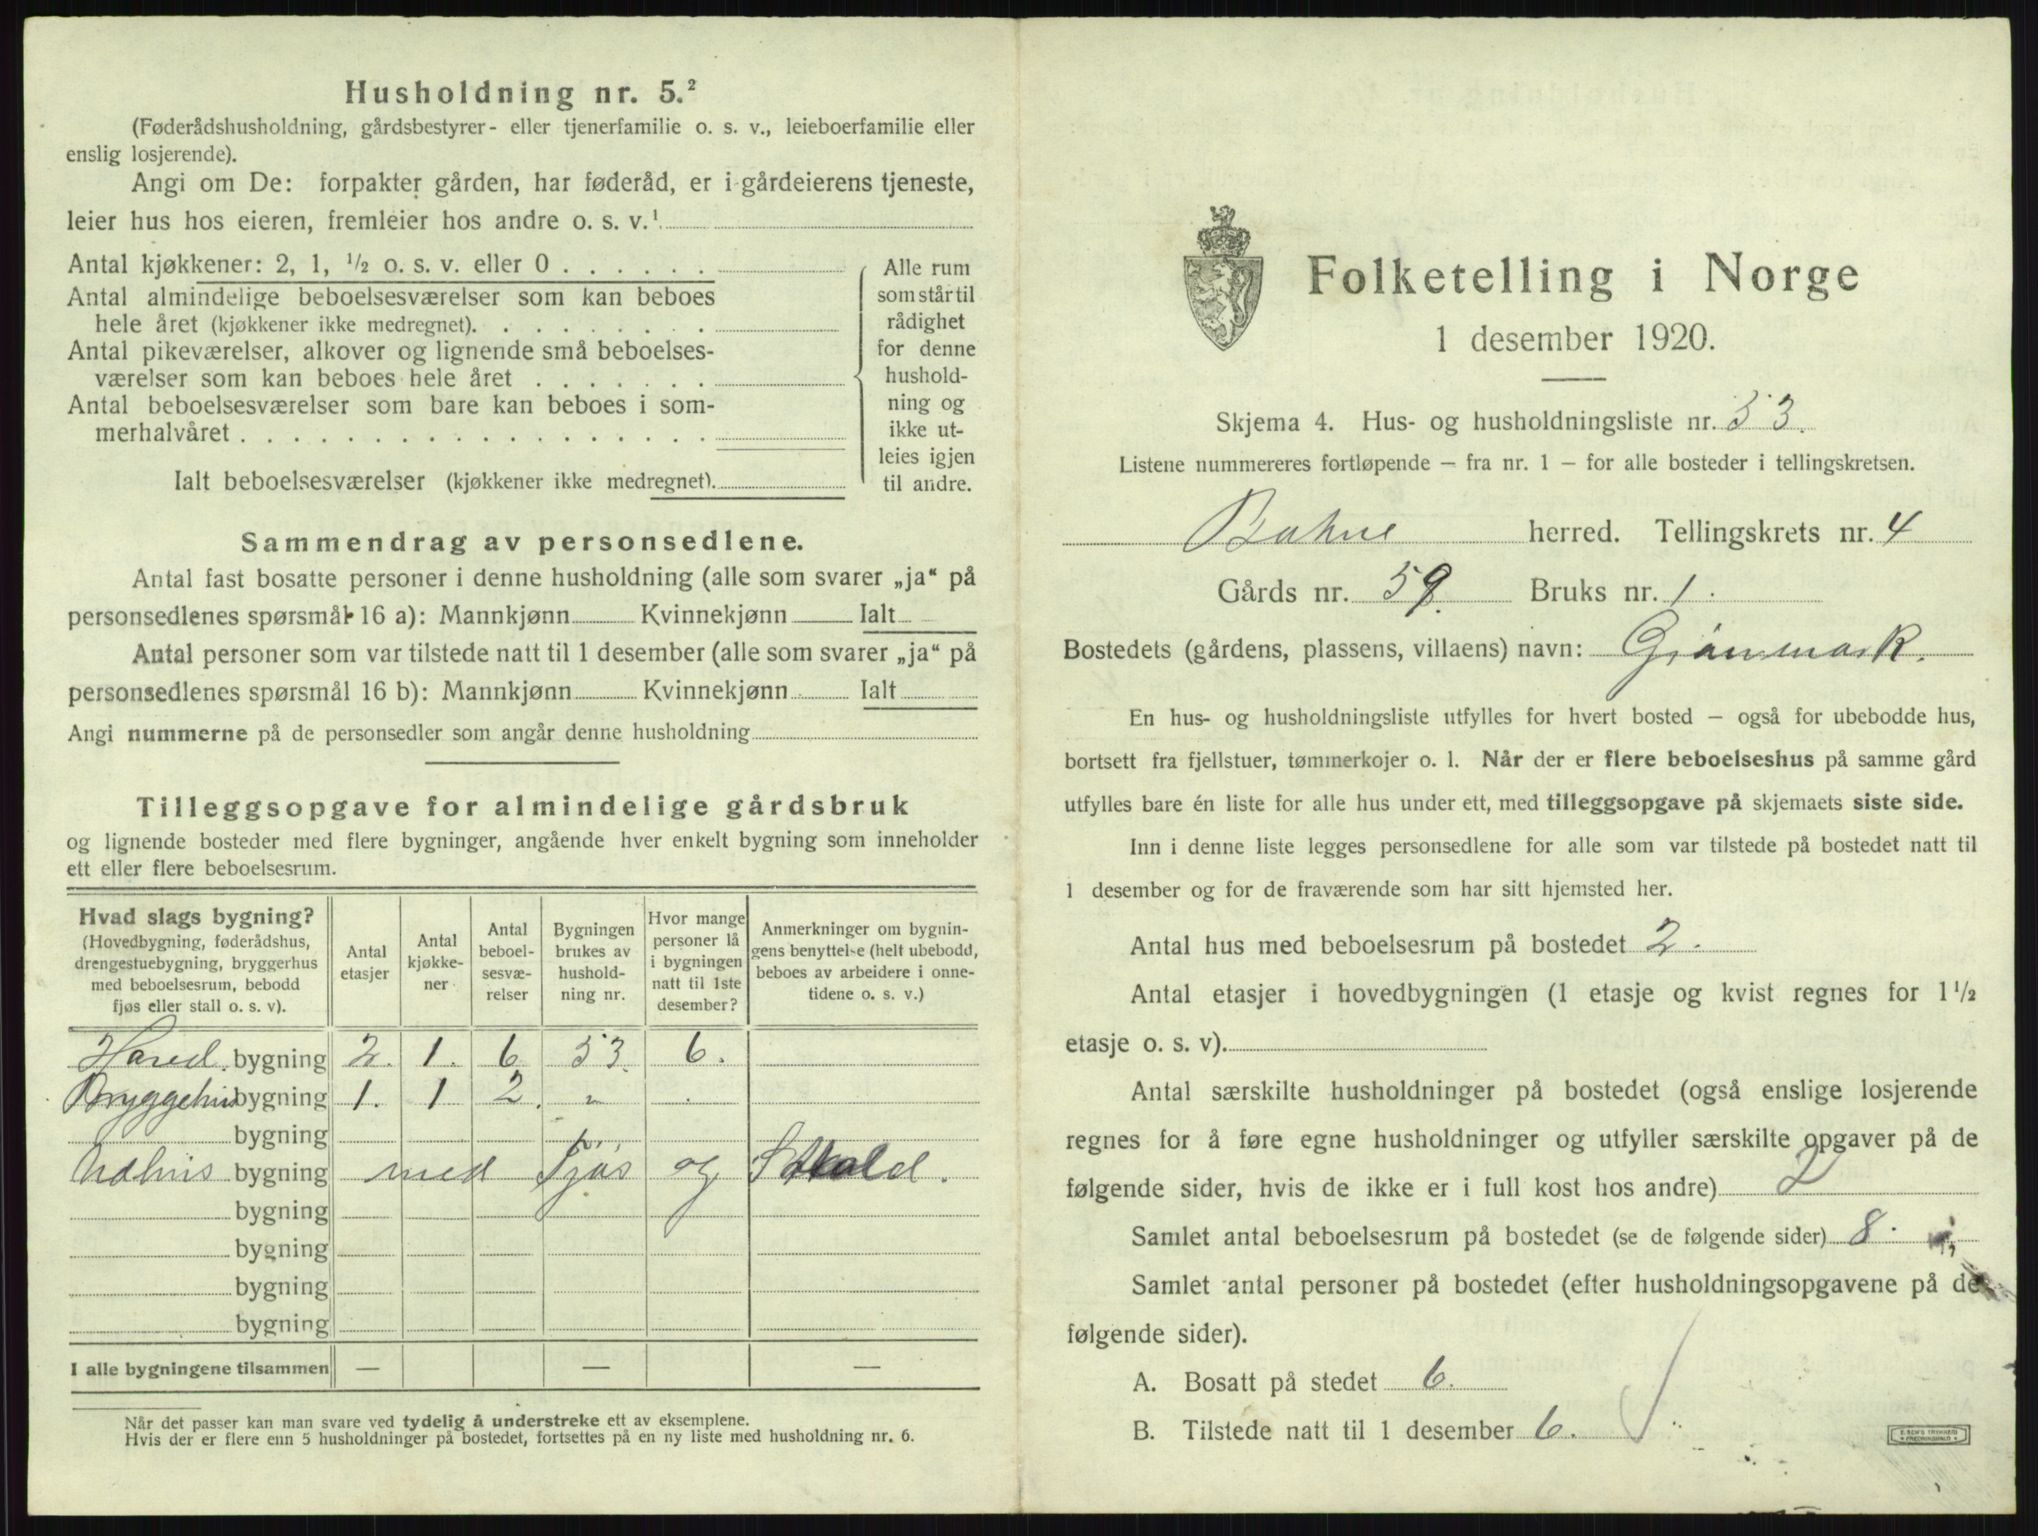 Husholdning nr. 5.²
(Føderådshusholdning, gårdsbestyrer- eller tjenerfamilie o. s. v., leieboerfamilie eller
enslig losjerende).
Angi om De: forpakter gården, har føderåd, er i gårdeierens tjeneste,
leier hus hos eieren, fremleier hos andre o. s. v.¹
Antal kjøkkener: 2, 1, ½ o. s. v. eller 0 . . . . . .
Antal almindelige beboelsesværelser som kan beboes
hele året (kjøkkener ikke medregnet). . . . . . . . .
Antal pikeværelser, alkover og lignende små beboelses-
værelser som kan beboes hele året . . . . . . .
Antal beboelsesværelser som bare kan beboes i som-
merhalvåret . . . . . . . . . . . . . . . . . .
Alle rum
som står til
rådighet
for denne
hushold-
ning og
ikke ut-
leies igjen
til andre.
Ialt beboelsesværelser (kjøkkener ikke medregnet).
Sammendrag av personsedlene.
Antal fast bosatte personer i denne husholdning (alle som svarer „ja“ på
personsedlenes spørsmål 16 a): Mannkjønn Kvinnekjønn Ialt
Antal personer som var tilstede natt til 1 desember (alle som svarer „ja“ på
personsedlenes spørsmål 16 b): Mannkjønn Kvinnekjønn Ialt
Angi nummerne på de personsedler som angår denne husholdning
Tilleggsopgave for almindelige gårdsbruk
og lignende bosteder med flere bygninger, angående hver enkelt bygning som inneholder
ett eller flere beboelsesrum.
Hvad slags bygning?
(Hovedbygning, føderådshus,
drengestuebygning, bryggerhus
med beboelsesrum, bebodd
fjøs eller stall o. s. v).
Antal
etasjer
Antal
kjøkke-
ner
Antal
beboel-
sesvæ-
relser
Bygningen
brukes av
hushold-
ning nr.
Hvor mange
personer lå
i bygningen
natt til 1ste
desember?
Anmerkninger om bygnin-
gens benyttelse (helt ubebodd,
beboes av arbeidere i onne-
tidene o. s. v.)
Hoved. bygning 2. 1. 6 53. 6.
Bryggehus bygning 1. 1 2. „ .
bygning
Udhus bygning med Fjøs og
bygning
bygning
bygning
bygning
I alle bygningene tilsammen — — —
Når det passer kan man svare ved tydelig å understreke ett av eksemplene.
Hvis der er flere enn 5 husholdninger på bostedet, fortsettes på en ny liste med husholdning nr. 6.
Folketelling i Norge
1 desember 1920.
Skjema 4. Hus- og husholdningsliste nr. 53.
Listene nummereres fortløpende – fra nr. 1 – for alle bosteder i tellingskretsen.
herred. Tellingskrets nr. 4
Gårds nr. 59. Bruks nr. 1.
Bostedets (gårdens, plassens, villaens) navn:
En hus- og husholdningsliste utfylles for hvert bosted – også for ubebodde hus,
bortsett fra fjellstuer, tømmerkojer o. l. Når der er flere beboelseshus på samme gård
utfylles bare én liste for alle hus under ett, med tilleggsopgave på skjemaets siste side.
Inn i denne liste legges personsedlene for alle som var tilstede på bostedet natt til
1 desember og for de fraværende som har sitt hjemsted her.
Antal hus med beboelsesrum på bostedet 2.
Antal etasjer i hovedbygningen (1 etasje og kvist regnes for 1½
etasje o. s. v).
Antal særskilte husholdninger på bostedet (også enslige losjerende
regnes for å føre egne husholdninger og utfyller særskilte opgaver på de
følgende sider, hvis de ikke er i full kost hos andre) 2
Samlet antal beboelsesrum på bostedet (se de følgende sider) 8.
Samlet antal personer på bostedet (efter husholdningsopgavene på de
følgende sider).
A. Bosatt på stedet 6.
B. Tilstede natt til 1 desember 6.